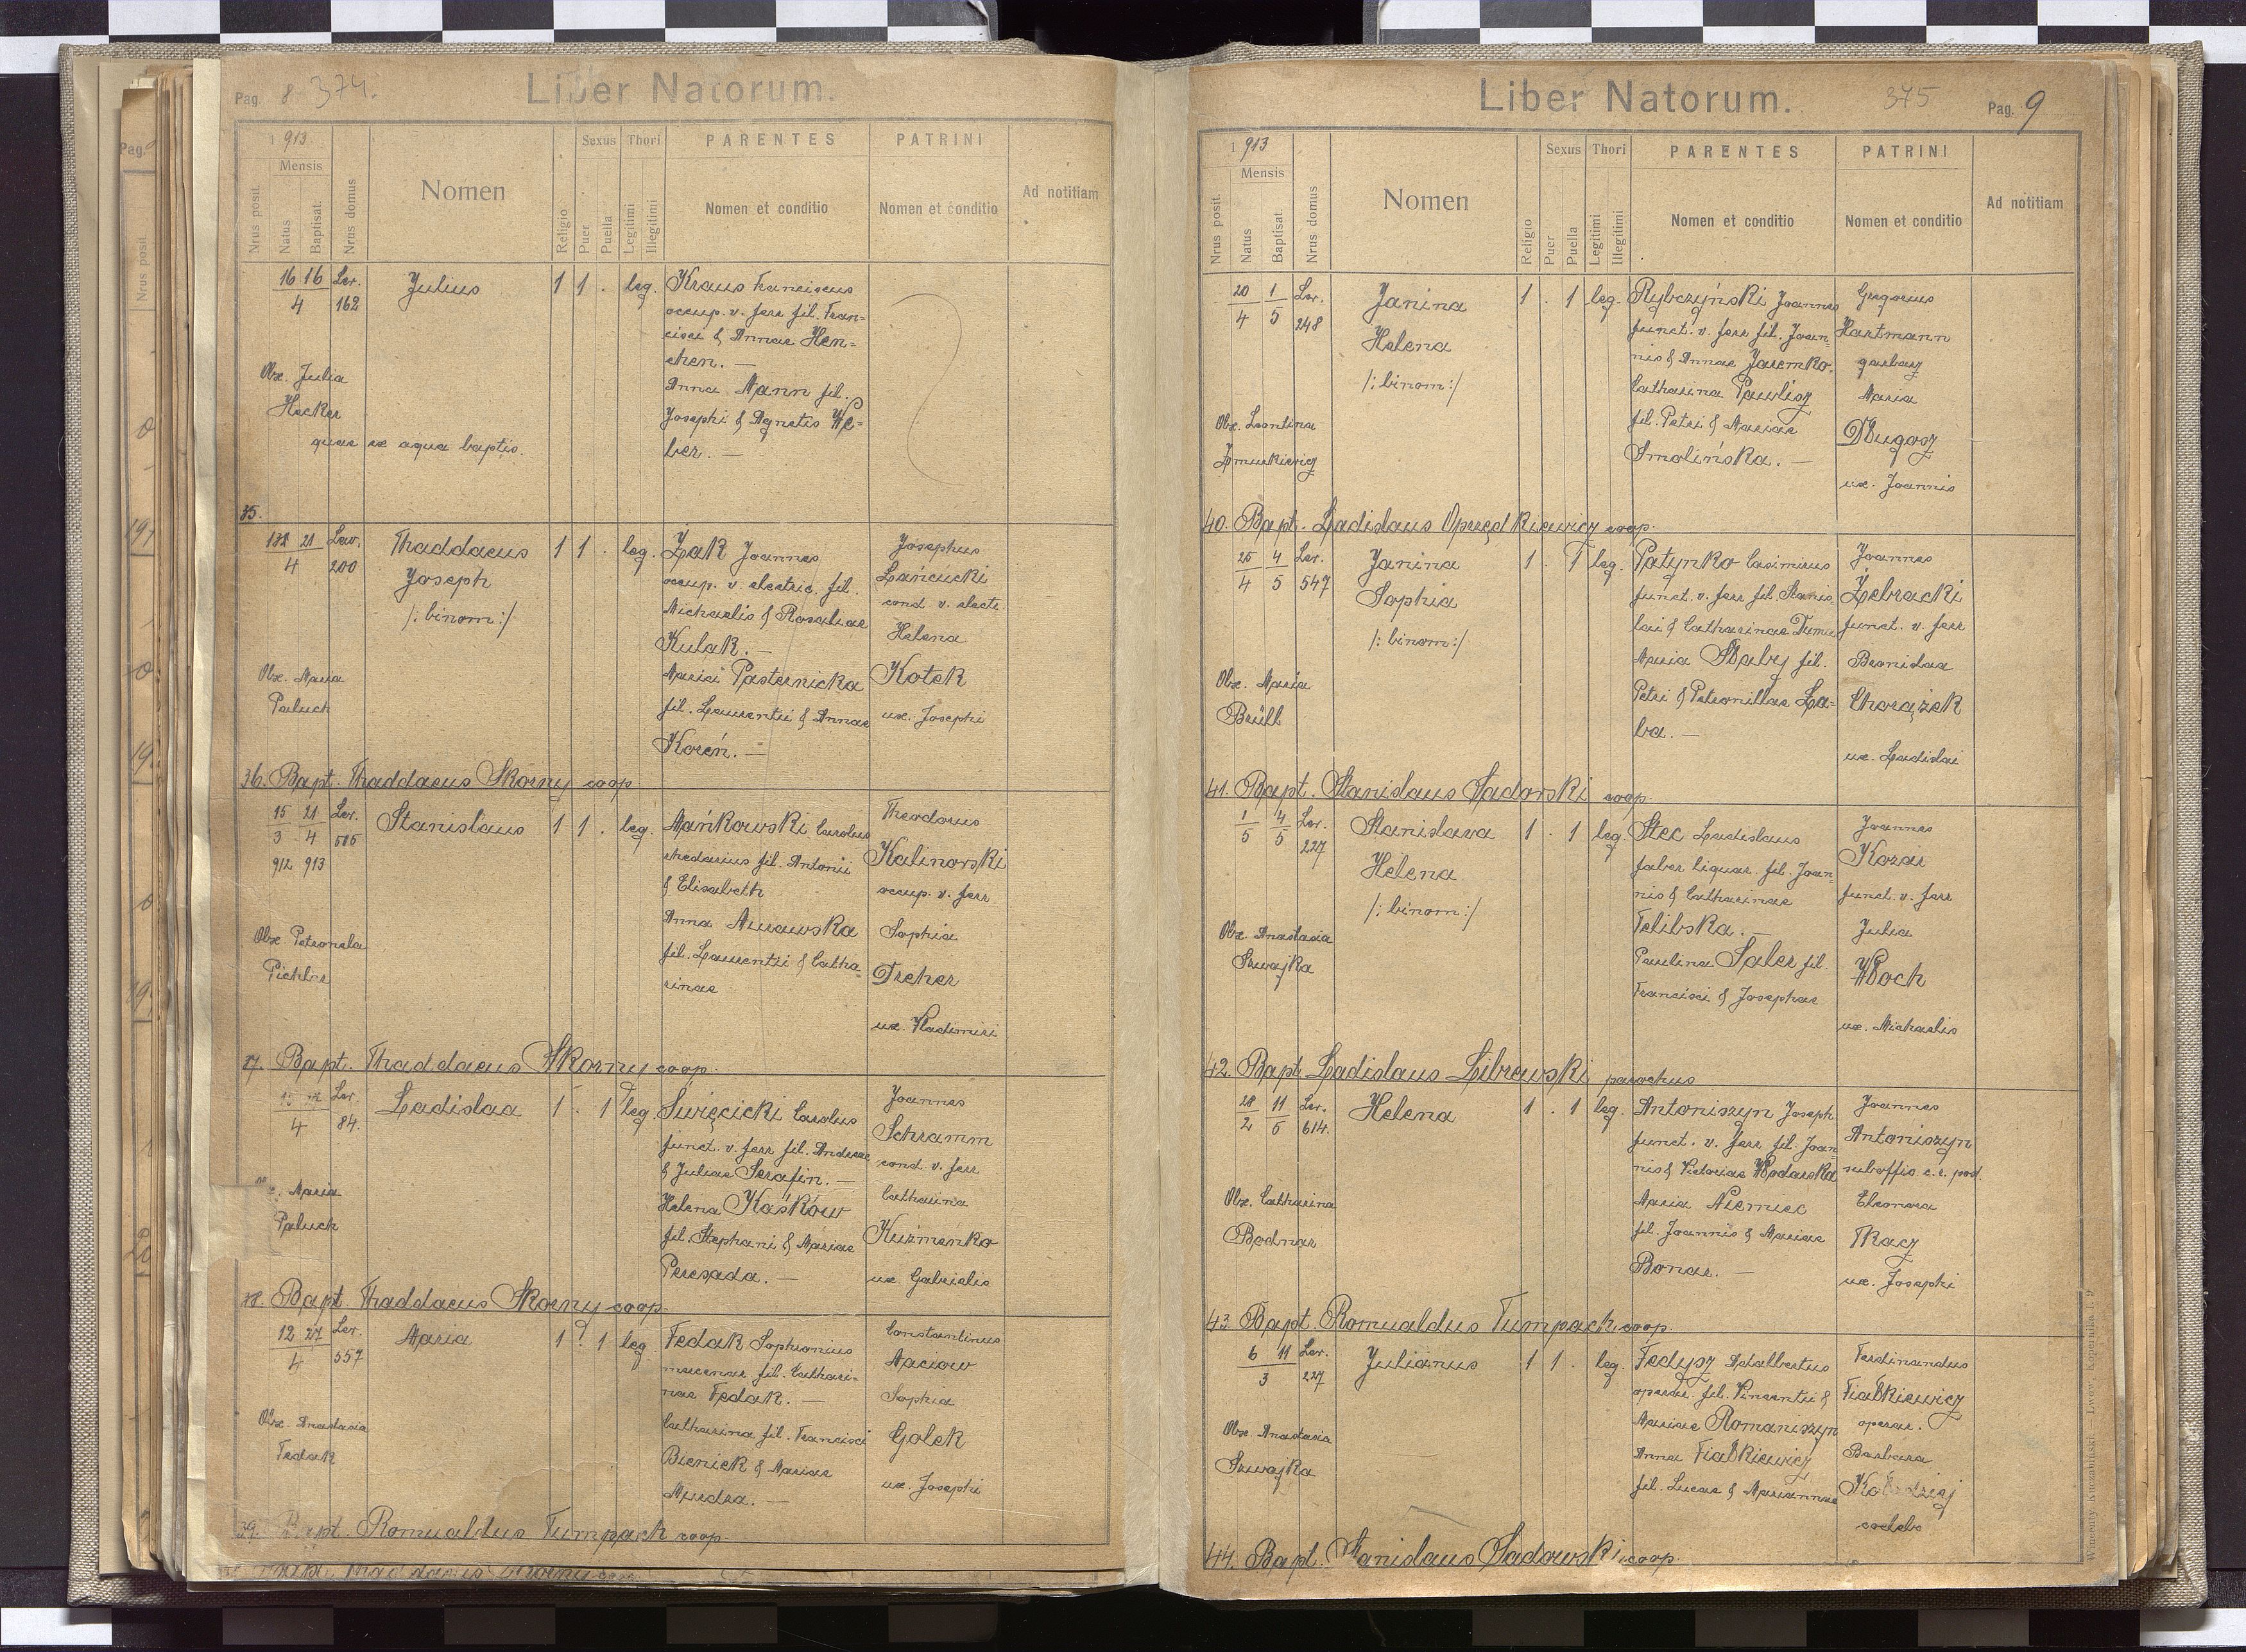 Pag. 8 374.
Liber Natorum.
1913
Mensis
Nrus posit.
Natus
Baptisat.
Nrus domus
Nomen
Religio
Sexus
Puer
Puella
Thori
Legitimi
Illegitimi
PARENTES
Nomen et conditio
PATRINI
Nomen et conditio
Ad notitiam
16 16 Lev.
4 162
Julius
1 1 . leg.
Kraus Franciscus
occup. v. ferr fil. Fran=
cisci & Annae Hen=
chen. —
Anna Mann fil.
Josephi & Agnetis We=
ber. —
Obx. Julia
Hecker
quae ex aqua baptis.
35.
21 Lew.
4 200
Thaddaeus
Joseph
/: binom :/
1 1 . leg.
Żak Joannes
occup. v. electric. fil.
Michaelis & Rosaliae
Kulak. —
Maria Pasternicka
fil. Laurentii & Annae
Koreń. —
Josephus
Łańcucki
cond. v. electr.
Helena
Kotek
ux. Josephi
Obx. Maria
Paluch
36. Bapt. Thaddaeus Skorny coop.
15 21 Lev.
3 4
912 913
Stanislaus
1 1 . leg.
Mańkowski Carolus
rhedarius fil. Antonii
& Elisabeth
Anna Murawska
fil. Laurentii & Catha=
rinae
Theodorus
Kalinowski
occup. v. ferr
Sophia
Treher
ux. Vladimiri
Obx. Petronela
Pichler
37. Bapt. Thaddaeus Skorny coop.
Lev.
4 84.
Ladislaa
1 . 1 leg.
Święcicki Carolus
funct. v. ferr fil. Andreae
& Juliae Serafin. —
Helena Kaśków
fil. Stephani & Mariae
Peresada. —
Joannes
Schramm
cond. v. ferr
Catharina
Kuźmeńko
ux. Gabrielis
Maria
Paluch
38. Bapt. Thaddaeus Skorny coop.
12 27 Lev.
4 557
Maria
1 . 1 leg
Fedak Sophronius
mercenar fil. Cathari=
nae Fedak. —
Catharina fil. Francisci
Bieniek & Mariae
Mudra. —
Constantinus
Maciow
Sophia
Golek
ux. Josephi
Obx. Anastasia
Fedak
39. Bapt. Romualdus Tumpach coop.
Liber Natorum.
375
Pag. 9
1913
Mensis
Nrus posit.
Natus
Baptisat.
Nrus domus
Nomen
Religio
Sexus
Puer
Puella
Thori
Legitimi
Illegitimi
PARENTES
Nomen et conditio
PATRINI
Nomen et conditio
Ad notitiam
20 1 Lev.
4 5 248
Janina
Helena
/: binom :/
1 . 1 leg.
Rybczyński Joannes
funct. v. ferr fil. Joan=
nis & Annae Jaremko.
Catharina Pawlisz
fil. Petri & Mariae
Smolińska. —
Gregorius
Hartmann
garbarz
Maria
Długosz
ux. Joannis
Obx. Leontina
Żmurkiewicz
40. Bapt. Ladislaus Oprzędkiewicz coop.
25 4 Lev.
4 5 547
Janina
Sophia
/: binom :/
1 . 1 leg.
Patynko Casimirus
funct. v. ferr fil. Stanis
lai & Catharinae
Maria Słaby fil.
Petri & Petronillae La=
ba. —
Joannes
Żebracki
funct. v. ferr
Bronislaa
Chorążek
ux. Ladislai
Obx. Maria
Brüll
41. Bapt. Stanislaus Sadowski coop.
1 4 Lev.
5 5 227
Stanislava
Helena
/: binom :/
1 . 1 leg.
Stec Ladislaus
faber liguar. fil. Joan=
nis & Catharinae
Telibska. —
Paulina Saler fil.
Francisci & Josephae
Joannes
Kozar
funct. v. ferr
Julia
Włoch
ux. Michaelis
Obx. Anastasia
Szwajka
42. Bapt. Ladislaus Librewski parochus
28 11 Lev.
2 5 614.
Helena
1 . 1 leg.
Antoniszyn Joseph
funct. v. ferr fil. Joan
nis & Victoriae Włodarska
Maria Niemiec
fil. Joannis & Mariae
Bonar. —
Joannes
Antoniszyn
suboffic c. r. pod.
Eleonora
Tkacz
ux. Josephi
Obx. Catharina
Bodnar
43. Bapt. Romualdus Tumpach coop.
6 11 Lev.
3 227
Julianus
1 1 . leg.
Fedysz Adalbertus
operar. fil. Vincentii &
Mariae Romaniszyn
Anna Fiałkiewicz
fil. Lucae & Mariannae
Ferdinandus
Fiałkiewicz
operar.
Barbara
Kołodziej
coelebs
Obx. Anastasia
Szwajka
44. Bapt. Stanislaus Sadowski coop.